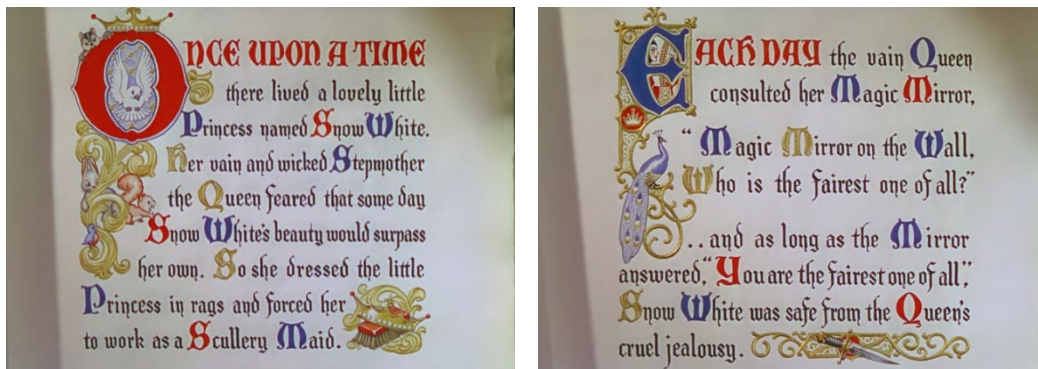 ONCE UPON A TIME
there lived a lovely little
Princess named Snow White.
Her vain and wicked Stepmother
the Queen feared that some day
Snow White's beauty would surpass
her own. So she dressed the little
Princess in rags and forced her
to work as a Scullery Maid.
EACH DAY the vain Queen
consulted her Magic Mirror,
"Magic Mirror on the Wall,
Who is the fairest one of all?"
..and as long as the Mirror
answered,"You are the fairest one of all,"
Snow White was safe from the Queen's
cruel jealousy.